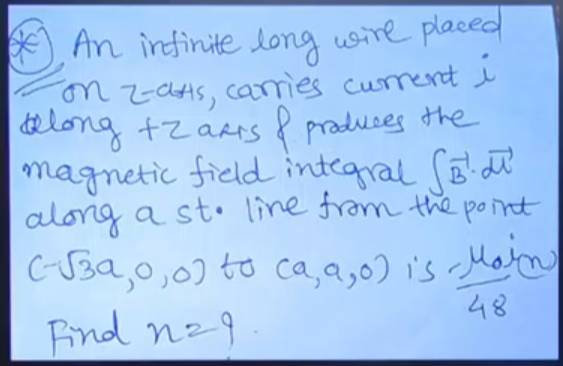 * An infinite long wire placed
on z-axis, carries current i
along +z axis & produces the
magnetic field integral ∫B⃗·dl⃗
along a st. line from the point
(-√3a,0,0) to (a,a,0) is μ₀in/48
Find n=?